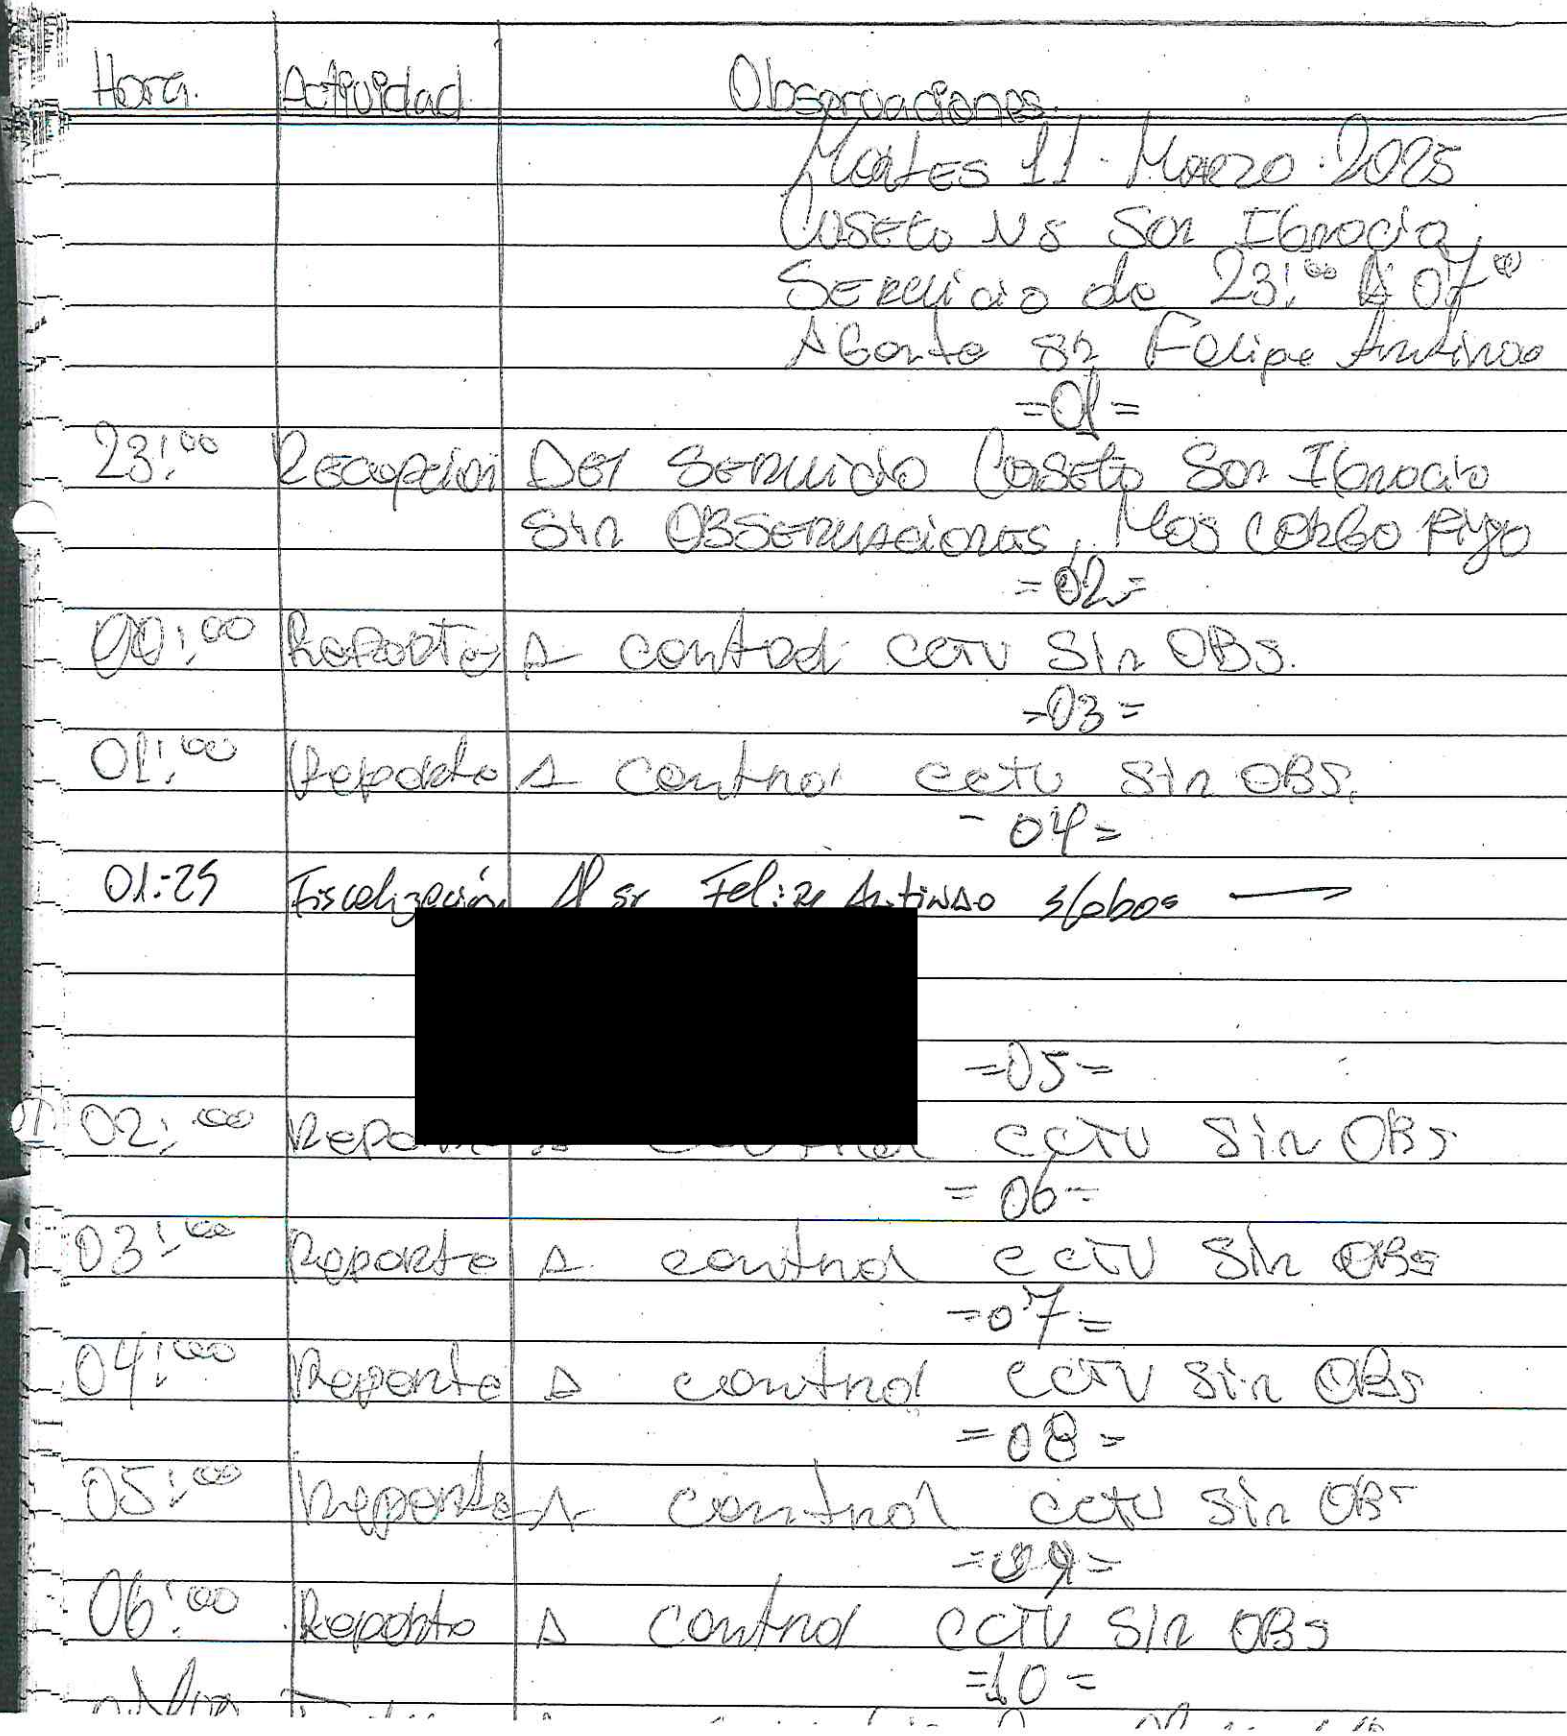 Hora. Actividad Observaciones.
Martes 11. Marzo. 2025
Caseta N8 San Ignacio,
Servicio de 23:00 A 07 00
Agente Sr Felipe Antinao
=01=
23:00 Recepcion Del Servicio Caseta San Ignacio
Sin OBSERVACIONES, Mas cargo Fijo
=02=
00:00 Reporte A control cctv Sin OBS.
-03=
01:00 Reporte A control cctv Sin OBS.
- 04=
01:25 Fiscalización Al sr Felipe Antinao s/obos
=05=
02:00 cctv Sin OBS
=06=
03:00 Reporte A control cctv Sin OBS
=07=
04:00 Reporte A control cctv Sin OBS
=08=
05:00 Reporte A control cctv Sin OBS
=09=
06:00 Reporte A control CCTV Sin OBS
=10=